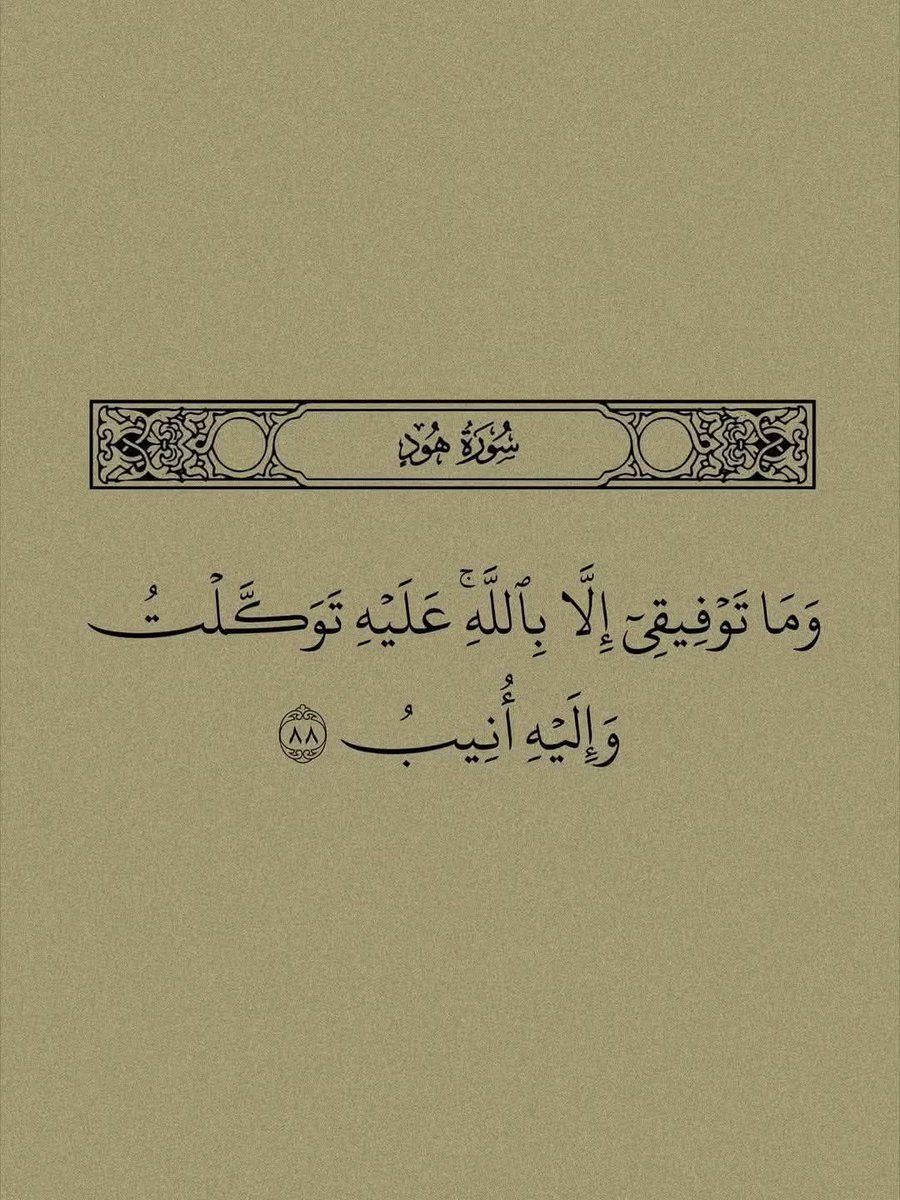 سُورَةُ هُودٍ
وَمَا تَوْفِيقِىٓ إِلَّا بِٱللَّهِ ۚ عَلَيْهِ تَوَكَّلْتُ
وَإِلَيْهِ أُنِيبُ ٨٨